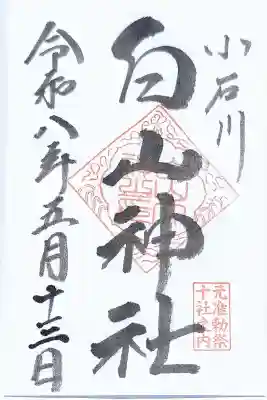 小石川
白山神社
令和八年五月十三日
元准勅祭
十社之内